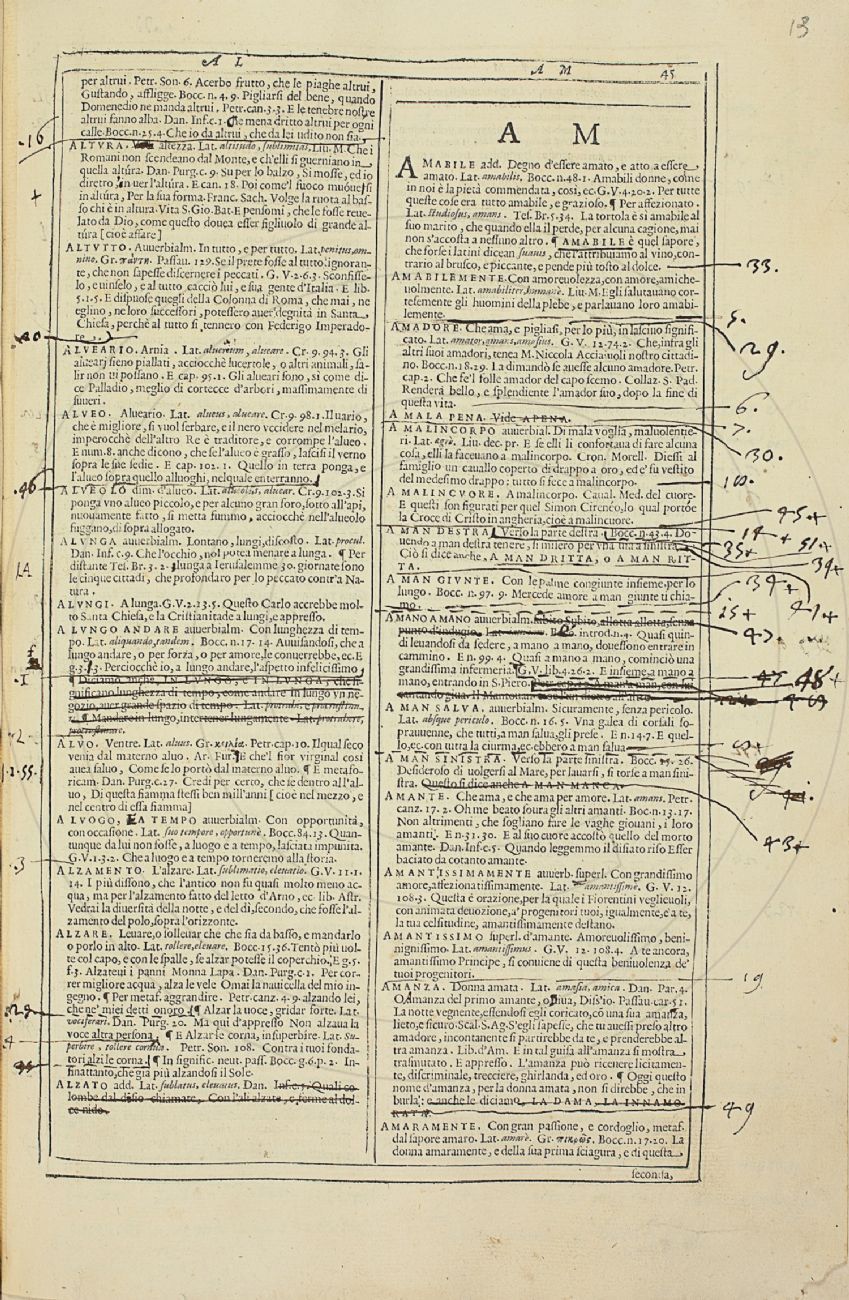 13
A L
A M
45
per altrui. Petr. Son. 6. Acerbo frutto, che le piaghe altrui,
Gustando, affligge. Bocc. n. 4. 9. Pigliarsi del bene, quando
Domenedio ne manda altrui. Petr. can. 3. 3. E le tenebre nostre
altrui fanno alba. Dan. Inf. c. 1. Che mena dritto altrui per ogni
calle. Bocc. n. 25. 4. Che io da altrui, che da lei udito non sia.
ALTVRA. altezza. Lat. altitudo, sublimitas. Liu. M. Che i
Romani non scendeano dal Monte, e ch'elli si guerniano in
quella altura. Dan. Purg. c. 9. Su per lo balzo, Si mosse, ed io
diretro, in ver l'altura. E can. 18. Poi come'l fuoco muouesi
in altura, Per la sua forma. Franc. Sach. Volge la ruota al bas-
so chi è in altura. Vita S. Gio. Bat. E pensomi, che le fosse reue-
lato da Dio, come questo douea esser figliuolo di grande al-
tura [cioè affare]
ALTVTTO. Auuerbialm. In tutto, e per tutto. Lat. penitus, om-
nino. Gr. πάντη. Passau. 129. Se il prete fosse al tutto ignoran-
te, che non sapesse discernere i peccati. G. V. 2. 6. 3. Sconfisse-
lo, e uinselo, e al tutto cacciò lui, e sua gente d'Italia. E lib.
5. 1. 5. E dispuose quegli della Colonna di Roma, che mai, ne
eglino, ne loro successori, potessero auer degnità in Santa
Chiesa, perchè al tutto si tennero con Federigo Imperado-
re.
ALVEARIO. Arnia. Lat. aluearium, alueare. Cr. 9. 94. 3. Gli
aluearj sieno piallati, acciocchè lucertole, o altri animali, sa-
lir non ui possano. E cap. 95. 1. Gli alueari sono, si come di-
ce Palladio, meglio di cortecce d'arbori, massimamente di
suueri.
ALVEO. Alueario. Lat. alueus, alueare. Cr. 9. 98. 1. Il uario,
che è migliore, si vuol serbare, e il nero vccidere nel melario,
imperocchè dell'altro Re è traditore, e corrompe l'alueo.
E num. 8. anche dicono, che se l'alueo è grasso, lascisi il verno
sopra le sue sedie. E cap. 102. 1. Quello in terra ponga, e
l'alueo sopra quello alluoghi, nelquale enterranno.
ALVEOLO dim. d'alueo. Lat. alueolus, aluear. Cr. 9. 102. 3. Si
ponga vno alueo piccolo, e per alcuno gran foro, sotto all'api,
nuouamente fatto, si metta fummo, acciocchè nell'alueolo
fuggano, di sopra allogato.
ALVNGA auuerbialm. Lontano, lungi, discosto. Lat. procul.
Dan. Inf. c. 9. Che l'occhio, nol potea menare a lunga. ¶ Per
distante Tes. Br. 3. 2. lunga a Ierusalemme 30. giornate sono
le cinque cittadi, che profondaro per lo peccato contr'a Na-
tura.
ALVNGI. A lunga. G. V. 2. 13. 5. Questo Carlo accrebbe mol-
to Santa Chiesa, e la Cristianitade a lungi, e appresso.
A LVNGO ANDARE auuerbialm. Con lunghezza di tem-
po. Lat. aliquando, tandem. Bocc. n. 17. 14. Auuisandosi, che a
lungo andare, o per forza, o per amore, le conuerrebbe, ec. E
g. 3. f. 3. Perciocchè io, a lungo andare, l'aspetto infelicissimo
¶ Diciamo anche, IN LVNGO, e IN LVNGA, che si-
gnificano lunghezza di tempo, come andare in lungo vn ne-
gozio, auer grande spazio di tempo.
¶ Mandare in lungo, intertener lungamente. Lat. protrahere,
ALVO. Ventre. Lat. aluus. Gr. κοιλία. Petr. cap. 10. Il qual seco
venia dal materno aluo. Ar. Fur. E che'l fior virginal cosi
auea saluo, Come se lo portò dal materno aluo. ¶ E metafo-
ricam. Dan. Purg. c. 27. Credi per certo, che se dentro all'al-
uo, Di questa fiamma stessi ben mill'anni [cioè nel mezzo, e
nel centro di essa fiamma]
A LVOGO, E A TEMPO auuerbialm. Con opportunità,
con occasione. Lat. suo tempore, opportunè. Bocc. 84. 13. Quan-
tunque da lui non fosse, a luogo e a tempo, lasciata impunita.
G. V. 1. 3. 2. Che a luogo e a tempo torneremo alla storia.
ALZAMENTO. L'alzare. Lat. sublimatio, eleuatio. G. V. 11. 1.
14. I più dissono, che l'antico non fu quasi molto meno ac-
qua, ma per l'alzamento fatto del letto d'Arno, ec. lib. Astr.
Vedrai la diuersità della notte, e del dì, secondo, che fosse l'al-
zamento del polo, sopra l'orizzonte.
ALZARE. Leuare, o solleuar che che sia da basso, e mandarlo
o porlo in alto. Lat. tollere, eleuare. Bocc. 15. 36. Tentò più uol-
te col capo, e con le spalle, se alzar potesse il coperchio. E g. 5.
f. 3. Alzateui i panni Monna Lapa. Dan. Purg. c. 1. Per cor-
rer migliore acqua, alza le vele Omai la nauicella del mio in-
gegno. ¶ Per metaf. aggrandire. Petr. canz. 4. 9. alzando lei,
che ne' miei detti onoro. ¶ Alzar la uoce, gridar forte. Lat.
vociferari. Dan. Purg. 20. Ma qui d'appresso Non alzaua la
voce altra persona. ¶ E Alzar le corna, insuperbire. Lat. Su-
perbire, tollere cornua. Petr. Son. 108. Contra i tuoi fonda-
tori alzi le corna. ¶ In signific. neut. pass. Bocc. g. 6. p. 2. In-
finattanto, che già più alzandosi il Sole.
ALZATO add. Lat. sublatus, eleuatus. Dan. Inf. c. 5. Quali co-
lombe dal disio chiamate, Con l'ali alzate, e ferme al dol-
ce nido.
A M
AMABILE add. Degno d'essere amato, e atto a essere
amato. Lat. amabilis. Bocc. n. 48. 1. Amabili donne, come
in noi è la pietà commendata, così, ec. G. V. 4. 20. 2. Per tutte
queste cose era tutto amabile, e grazioso. ¶ Per affezionato.
Lat. studiosus, amans. Tes. Br. 5. 34. La tortola è si amabile al
suo marito, che quando ella il perde, per alcuna cagione, mai
non s'accosta a nessuno altro. ¶ AMABILE è quel sapore,
che forse i latini dicean suauis, che l'attribuiamo al vino, con-
trario al brusco, e piccante, e pende più tosto al dolce.
AMABILEMENTE. Con amoreuolezza, con amore, amiche-
uolmente. Lat. amabiliter, humanè. Liu. M. Egli salutauano cor-
tesemente gli huomini della plebe, e parlauano loro amabi-
lemente.
AMADORE. Che ama, e pigliasi, per lo più, in lasciuo signifi-
cato. Lat. amator, amans, amasius. G. V. 12. 74. 2. Che, infra gli
altri suoi amadori, tenea M. Niccola Acciaiuoli nostro cittadi-
no. Bocc. n. 18. 29. La dimandò se auesse alcuno amadore. Petr.
cap. 2. Che fe'l folle amador del capo scemo. Collaz. S. Pad.
Renderà bello, e splendiente l'amador suo, dopo la fine di
questa vita.
A MALA PENA. Vide APENA.
A MALINCORPO auuerbial. Di mala voglia, maluolentie-
ri. Lat. ægrè. Liu. dec. pr. E se elli li confortaua di fare alcuna
cosa, elli la faceuano a malincorpo. Cron. Morell. Diessi al
famiglio un cauallo coperto di drappo a oro, ed e' fu vestito
del medesimo drappo: tutto si fece a malincorpo.
A MALINCVORE. A malincorpo. Caual. Med. del cuore.
E questi son figurati per quel Simon Cireneo, lo qual portòe
la Croce di Cristo in angheria, cioè a malincuore.
A MAN DESTRA. Verso la parte destra. Bocc. n. 43. 4. Do-
uendo a man destra tenere, si misero per vna via a sinistra.
Ciò si dice anche, A MAN DRITTA, O A MAN RIT-
TA.
A MAN GIVNTE. Con le palme congiunte insieme, per lo
lungo. Bocc. n. 97. 9. Mercede amore a man giunte ti chia-
mo.
AMANO AMANO auuerbialm. subito subito, allotta allotta, senza
punto d'indugio. Bocc. introd. n. 4. Quasi quin-
di leuandosi da sedere, a mano a mano, douessono entrare in
cammino. E n. 99. 4. Quasi a mano a mano, cominciò una
grandissima infermeria. G. V. lib. 4. 26. 2. E insieme, a mano a
mano, entrando in S. Piero.
A MAN SALVA, auuerbialm. Sicuramente, senza pericolo.
Lat. absque periculo. Bocc. n. 16. 5. Vna galea di corsali so-
prauuenne, che tutti, a man salua, gli prese. E n. 14. 7. E quel-
lo, ec. con tutta la ciurma, ec. ebbero a man salua
A MAN SINISTRA. Verso la parte sinistra. Bocc. 15. 26.
Desideroso di uolgersi al Mare, per lauarsi, si torse a man sini-
stra. Questo si dice anche A MAN MANCA.
AMANTE. Che ama, e che ama per amore. Lat. amans. Petr.
canz. 17. 2. Oh me beato soura gli altri amanti. Boc. n. 13. 17.
Non altrimenti, che sogliano fare le vaghe giouani, i loro
amanti. E n. 31. 30. E al suo cuore accosto quello del morto
amante. Dan. Inf. c. 5. Quando leggemmo il disiato riso Esser
baciato da cotanto amante.
AMANTISSIMAMENTE auuerb. superl. Con grandissimo
amore, affezionatissimamente. Lat. amantissimè. G. V. 12.
108. 3. Questa è orazione, per la quale i Fiorentini veglieuoli,
con animata deuozione, a' progenitori tuoi, igualmente, e a te,
la tua celsitudine, amantissimamente destano.
AMANTISSIMO superl. d'amante. Amoreuolissimo, beni-
nignissimo. Lat. amantissimus. G. V. 12. 108. 4. A te ancora,
amantissimo Principe, si conuiene di questa beniuolenza de'
tuoi progenitori.
AMANZA. Donna amata. Lat. amasia, amica. Dan. Par. 4.
O amanza del primo amante, o diua, Diss'io. Passau. car. 51.
La notte vegnente, essendosi egli coricato, cō una sua amanza,
lieto, e sicuro. Scal. S. Ag. S'egli sapesse, che tu auessi preso altro
amadore, incontanente si partirebbe da te, e prenderebbe al-
tra amanza. Lib. d'Am. E in tal guisa all'amanza si mostra
trasmutato. E appresso. L'amanza può riceuere licitamen-
te, discriminale, trecciere, ghirlanda, ed oro. ¶ Oggi questo
nome d'amanza, per la donna amata, non si direbbe, che in
burla: e anche le diciamo, LA DAMA, LA INNAMO-
RATA.
AMARAMENTE. Con gran passione, e cordoglio, metaf.
dal sapore amaro. Lat. amarè. Gr. πικρῶς. Bocc. n. 17. 20. La
donna amaramente, e della sua prima sciagura, e di questa
seconda,
.16
+
20
.46
.1
2
1.55.
.3
4
33.
5.
29.
6.
7.
30.
100.
45+
14+
51+
35+
39+
34+
25+
41+
47.
48+
43+
19.
49